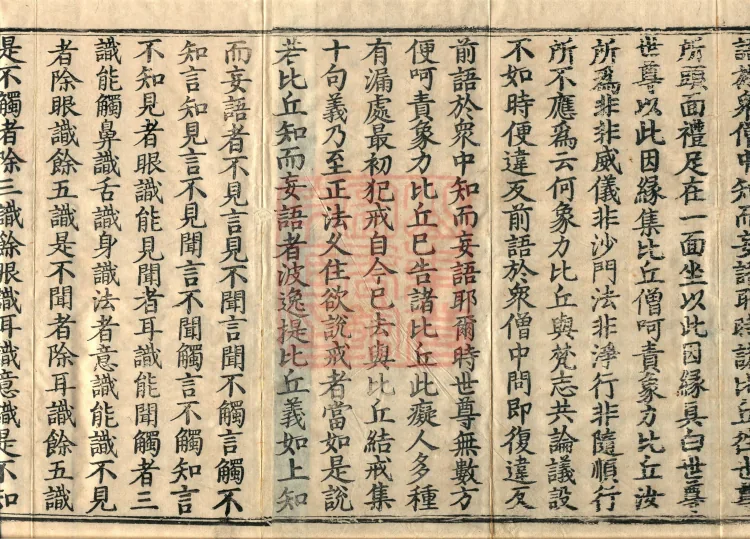 語於衆僧中知而妄語耶
所頭面禮足在一面坐以此因緣具白世尊
世尊以此因緣集比丘僧呵責象力比丘汝
所爲非非威儀非沙門法非淨行非隨順行
所不應爲云何象力比丘與梵志共論議設
不如時便違反前語於衆僧中問即復違反
前語於衆中知而妄語耶爾時世尊無數方
便呵責象力比丘已告諸比丘此癡人多種
有漏處最初犯戒自今已去與比丘結戒集
十句義乃至正法久住欲說戒者當如是說
若比丘知而妄語者波逸提比丘義如上知
而妄語者不見言見不聞言聞不觸言觸不
知言知見言不見聞言不聞觸言不觸知言
不知見者眼識能見聞者耳識能聞觸者三
識能觸鼻識舌識身識法者意識能識不見
者除眼識餘五識是不聞者除耳識餘五識
是不觸者除三識餘眼識耳識意識是不知